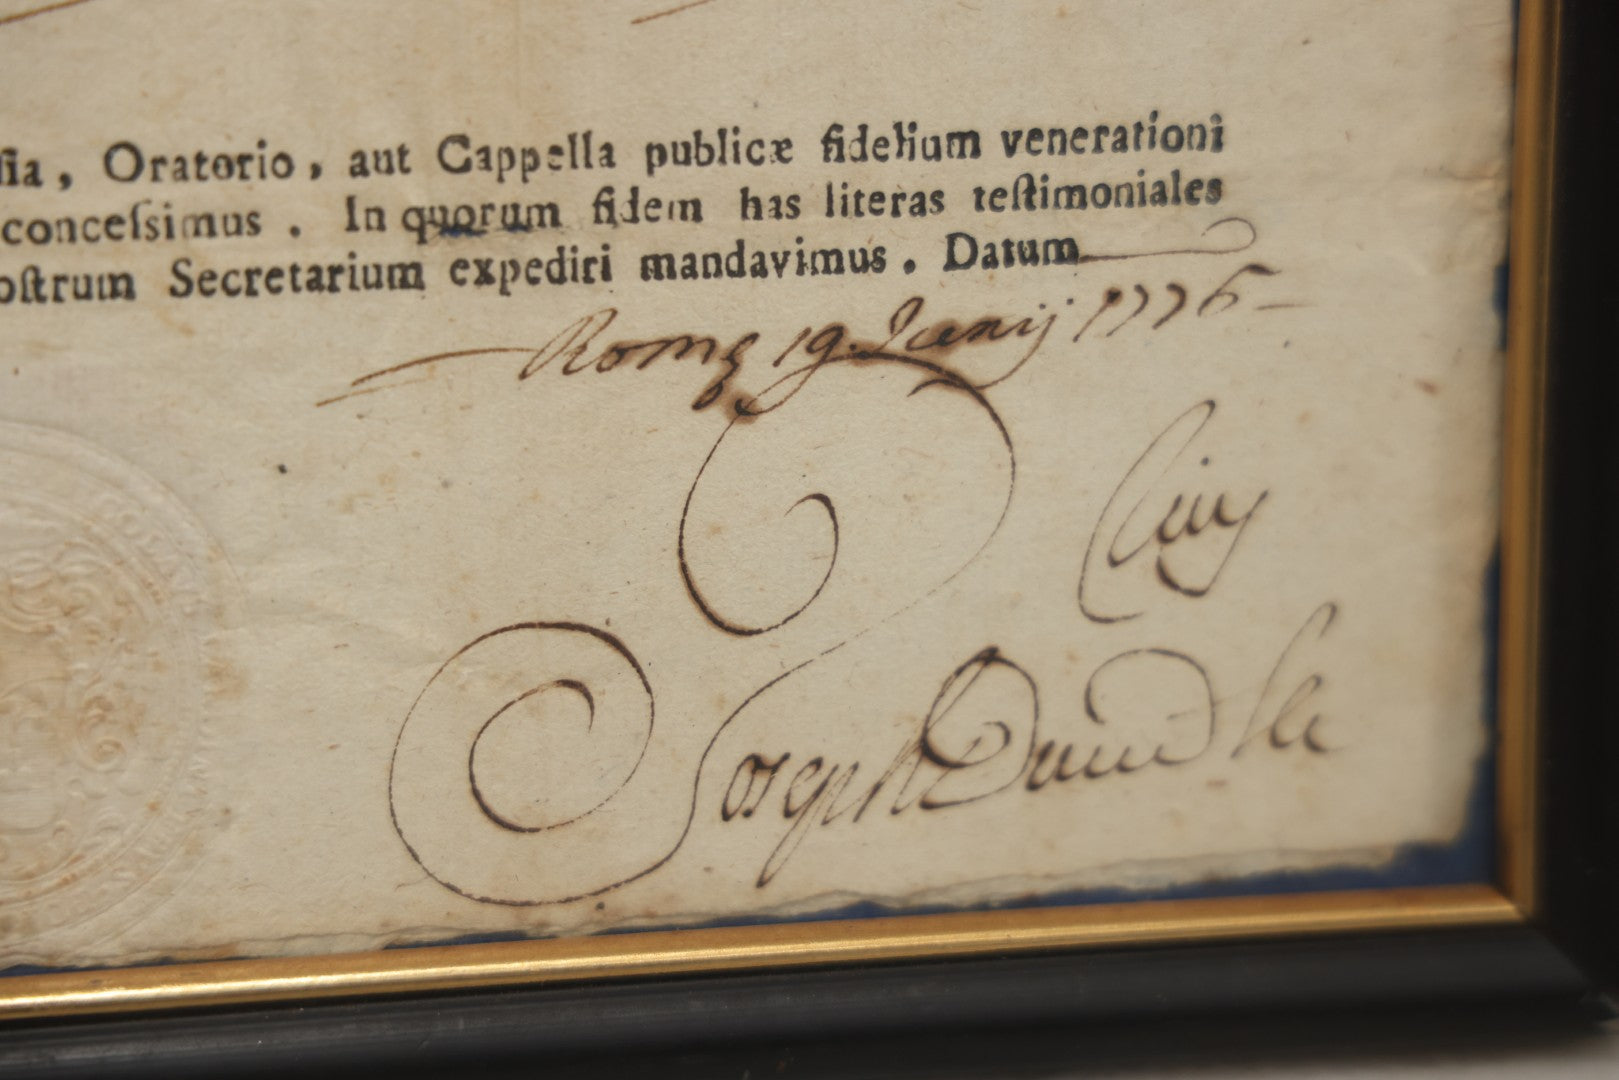 ſia, Oratorio, aut Cappella publicæ fidelium venerationi
conceſsimus. In quorum fidem has literas teſtimoniales
oſtrum Secretarium expediri mandavimus. Datum
Romæ 19. Junij 1776
Joseph